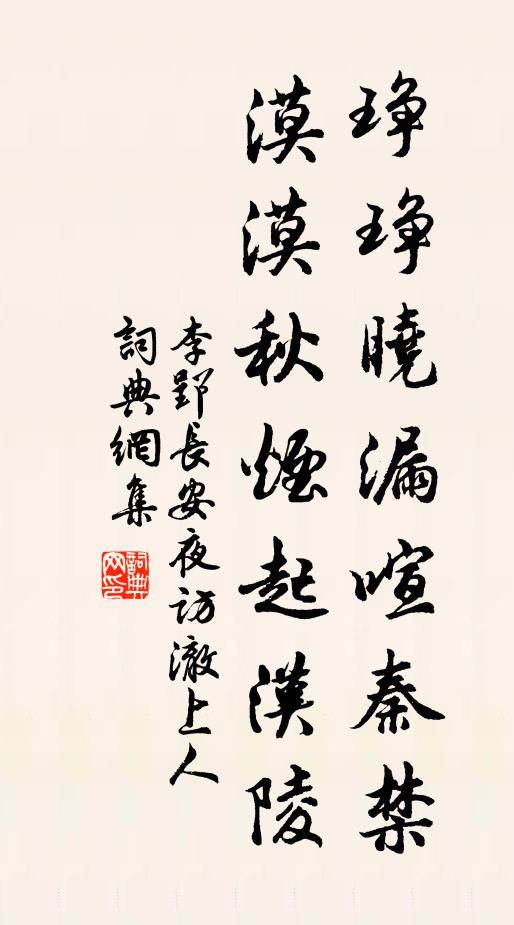 琤琤曉漏喧秦禁
漠漠秋煙起漢陵
李郢長安夜訪澈上人
詞典網集
詞典网印